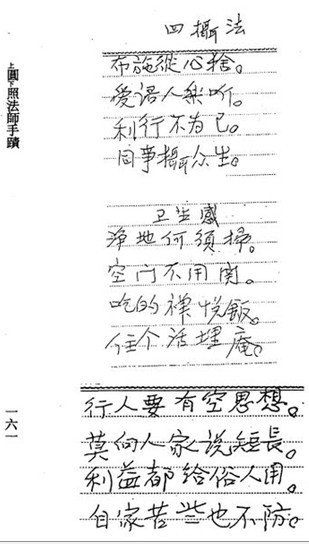 四攝法
布施從心捨。
愛语人樂听。
利行不为己。
同事攝众生。
卫生感
淨地何須掃。
空门不用関。
吃的禅悦飯。
住个活埋庵。
行人要有空思想。
莫向人家说短長。
利益都给俗人用。
自家苦些也不防。
上圓下照法師手蹟
一六一